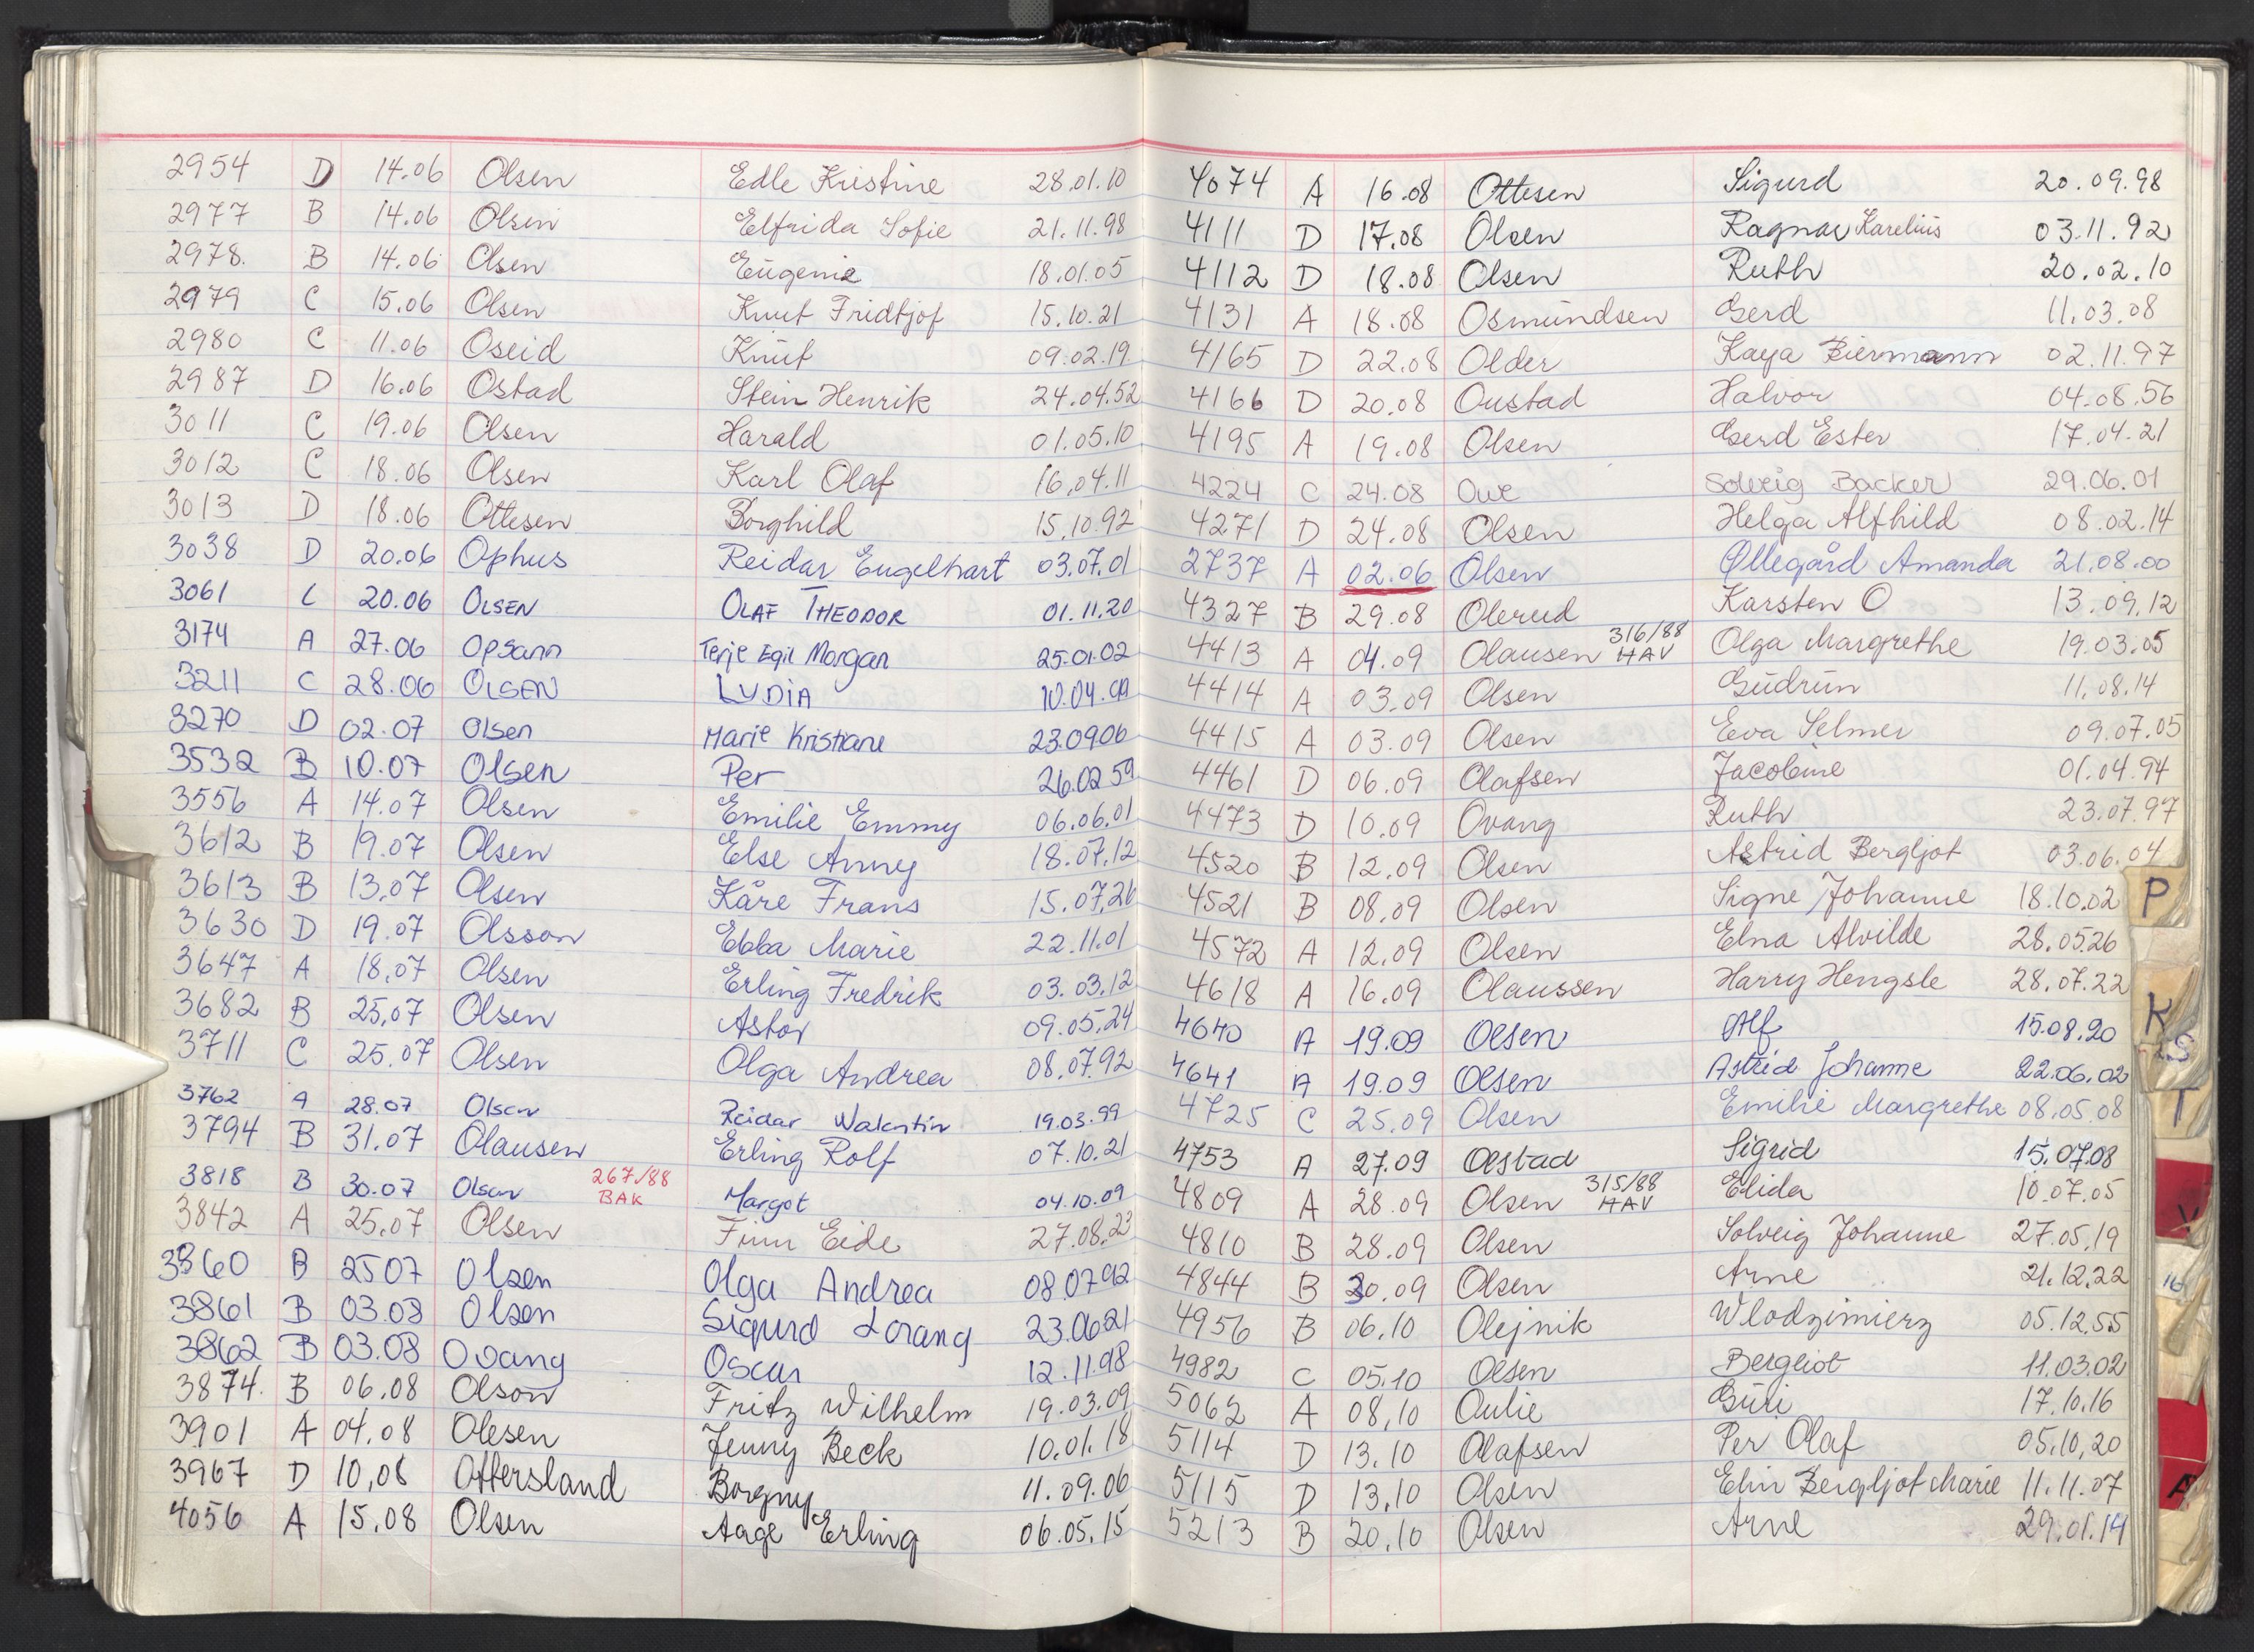 2954 D 14.06 Olsen Edle Kristine 28.01.10
2977 B 14.06 Olsen Elfrida Sofie 21.11.98
2978. B 14.06 Olsen Eugenie 18.01.05
2979 C 15.06 Olsen Knut Fridtjof 15.10.21
2980 C 11.06 Oseid Knut 09.02.19
2987 D 16.06 Ostad Stein Henrik 24.04.52
3011 C 19.06 Olsen Harald 01.05.10
3012 C 18.06 Olsen Karl Olaf 16.04.11
3013 D 18.06 Ottesen Borghild 15.10.92
3038 D 20.06 Ophus Reidar Engelhart 03.07.01
3061 C 20.06 OLSEN OLAF THEODOR 01.11.20
3174 A 27.06 Opsann Terje Egil Morgan 25.01.02
3211 C 28.06 OLSEN LYDIA 10.04.
3270 D 02.07 Olsen Marie Kristiane 23.09.06
3532 B 10.07 Olsen Per 26.02.59
3556 A 14.07 Olsen Emilie Emmy 06.06.01
3612 B 19.07 Olsen Else Anny 18.07.12
3613 B 13.07 Olsen Kåre Frans 15.07.26
3630 D 19.07 Olsson Ebba Marie 22.11.01
3647 A 18.07 Olsen Erling Fredrik 03.03.12
3682 B 25.07 Olsen Astor 09.05.24
3711 C 25.07 Olsen Olga Andrea 08.07.92
3762 A 28.07 Olsen Reidar Walentin 19.03.99
3794 B 31.07 Olausen Erling Rolf 07.10.21
3818 B 30.07 Olsen 267/88 BAK Margot 04.10.09
3842 A 25.07 Olsen Finn Eide 27.08.23
3860 B 25 07 Olsen Olga Andrea 08 07 92
3861 B 03.08 Olsen Sigurd Lorang 23.06 21
3862 B 03.08 Ovang Oscar 12.11.98
3874. B 06.08 Olson Fritz Wilhelm 19.03.09
3901 A 04.08 Olesen Jenny Beck 10.01.18
3967 D 10.08 Ottersland Borgny 11.09.06
4056 A 15.08 Olsen Aage Erling 06.05.15
4074 A 16.08 Ottesen Sigurd 20.09.98
4111 D 17.08 Olsen Ragnar Karelius 03.11.92
4112 D 18.08 Olsen Ruth 20.02.10
4131 A 18.08 Osmundsen Gerd 11.03.08
4165 D 22.08 Older Kaya Biermann 02.11.97
4166 D 20.08 Oustad Halvor 04.08.56
4195 A 19.08 Olsen Gerd Ester 17.04.21
4224 C 24.08 Owe Solveig Backer 29.06.01
4271 D 24.08 Olsen Helga Alfhild 08.02.14
2737 A 02.06 Olsen Øllegård Amanda 21.08.00
4327 B 29.08 Olerud Karsten O 13.09.12
4413 A 04.09 Olausen 316/88 HAV Olga Margrethe 19.03.05
4414 A 03.09 Olsen Gudrun 11.08.14
4415 A 03.09 Olsen Eva Selmer 09.07.05
4461 D 06.09 Olafsen Jacobine 01.04.94
4473 D 10.09 Ovang Ruth 23.07.97
4520 B 12.09 Olsen Astrid Bergljot 03.06.04
4521 B 08.09 Olsen Signe Johanne 18.10.02
4572 A 12.09 Olsen Elna Alvilde 28.05.26
4618 A 16.09 Olaussen Harry Hengsle 28.07.22
4640 A 19.09 Olsen Alf 15.08.20
4641 A 19.09 Olsen Astrid Johanne 22.06.02
4725 C 25.09 Olsen Emilie Margrethe 08.05.08
4753 A 27.09 Olstad Sigrid 15.07.08
4809 A 28.09 Olsen 315/88 HAV Elida 10.07.05
4810 B 28.09 Olsen Solveig Johanne 27.05.19
4844 B 30.09 Olsen Arne 21.12.22
4956 B 06.10 Olejnik Wlodzimierz 05.12.55
4982 C 05.10 Olsen Bergliot 11.03.02
5062 A 08.10 Oulie Guri 17.10.16
5114 D 13.10 Olafsen Per Olaf 05.10.20
5115 D 13.10 Olsen Elin Bergljot Marie 11.11.07
5213 B 20.10 Olsen Arne 29.01.14
P
K
S
T
V
16
A